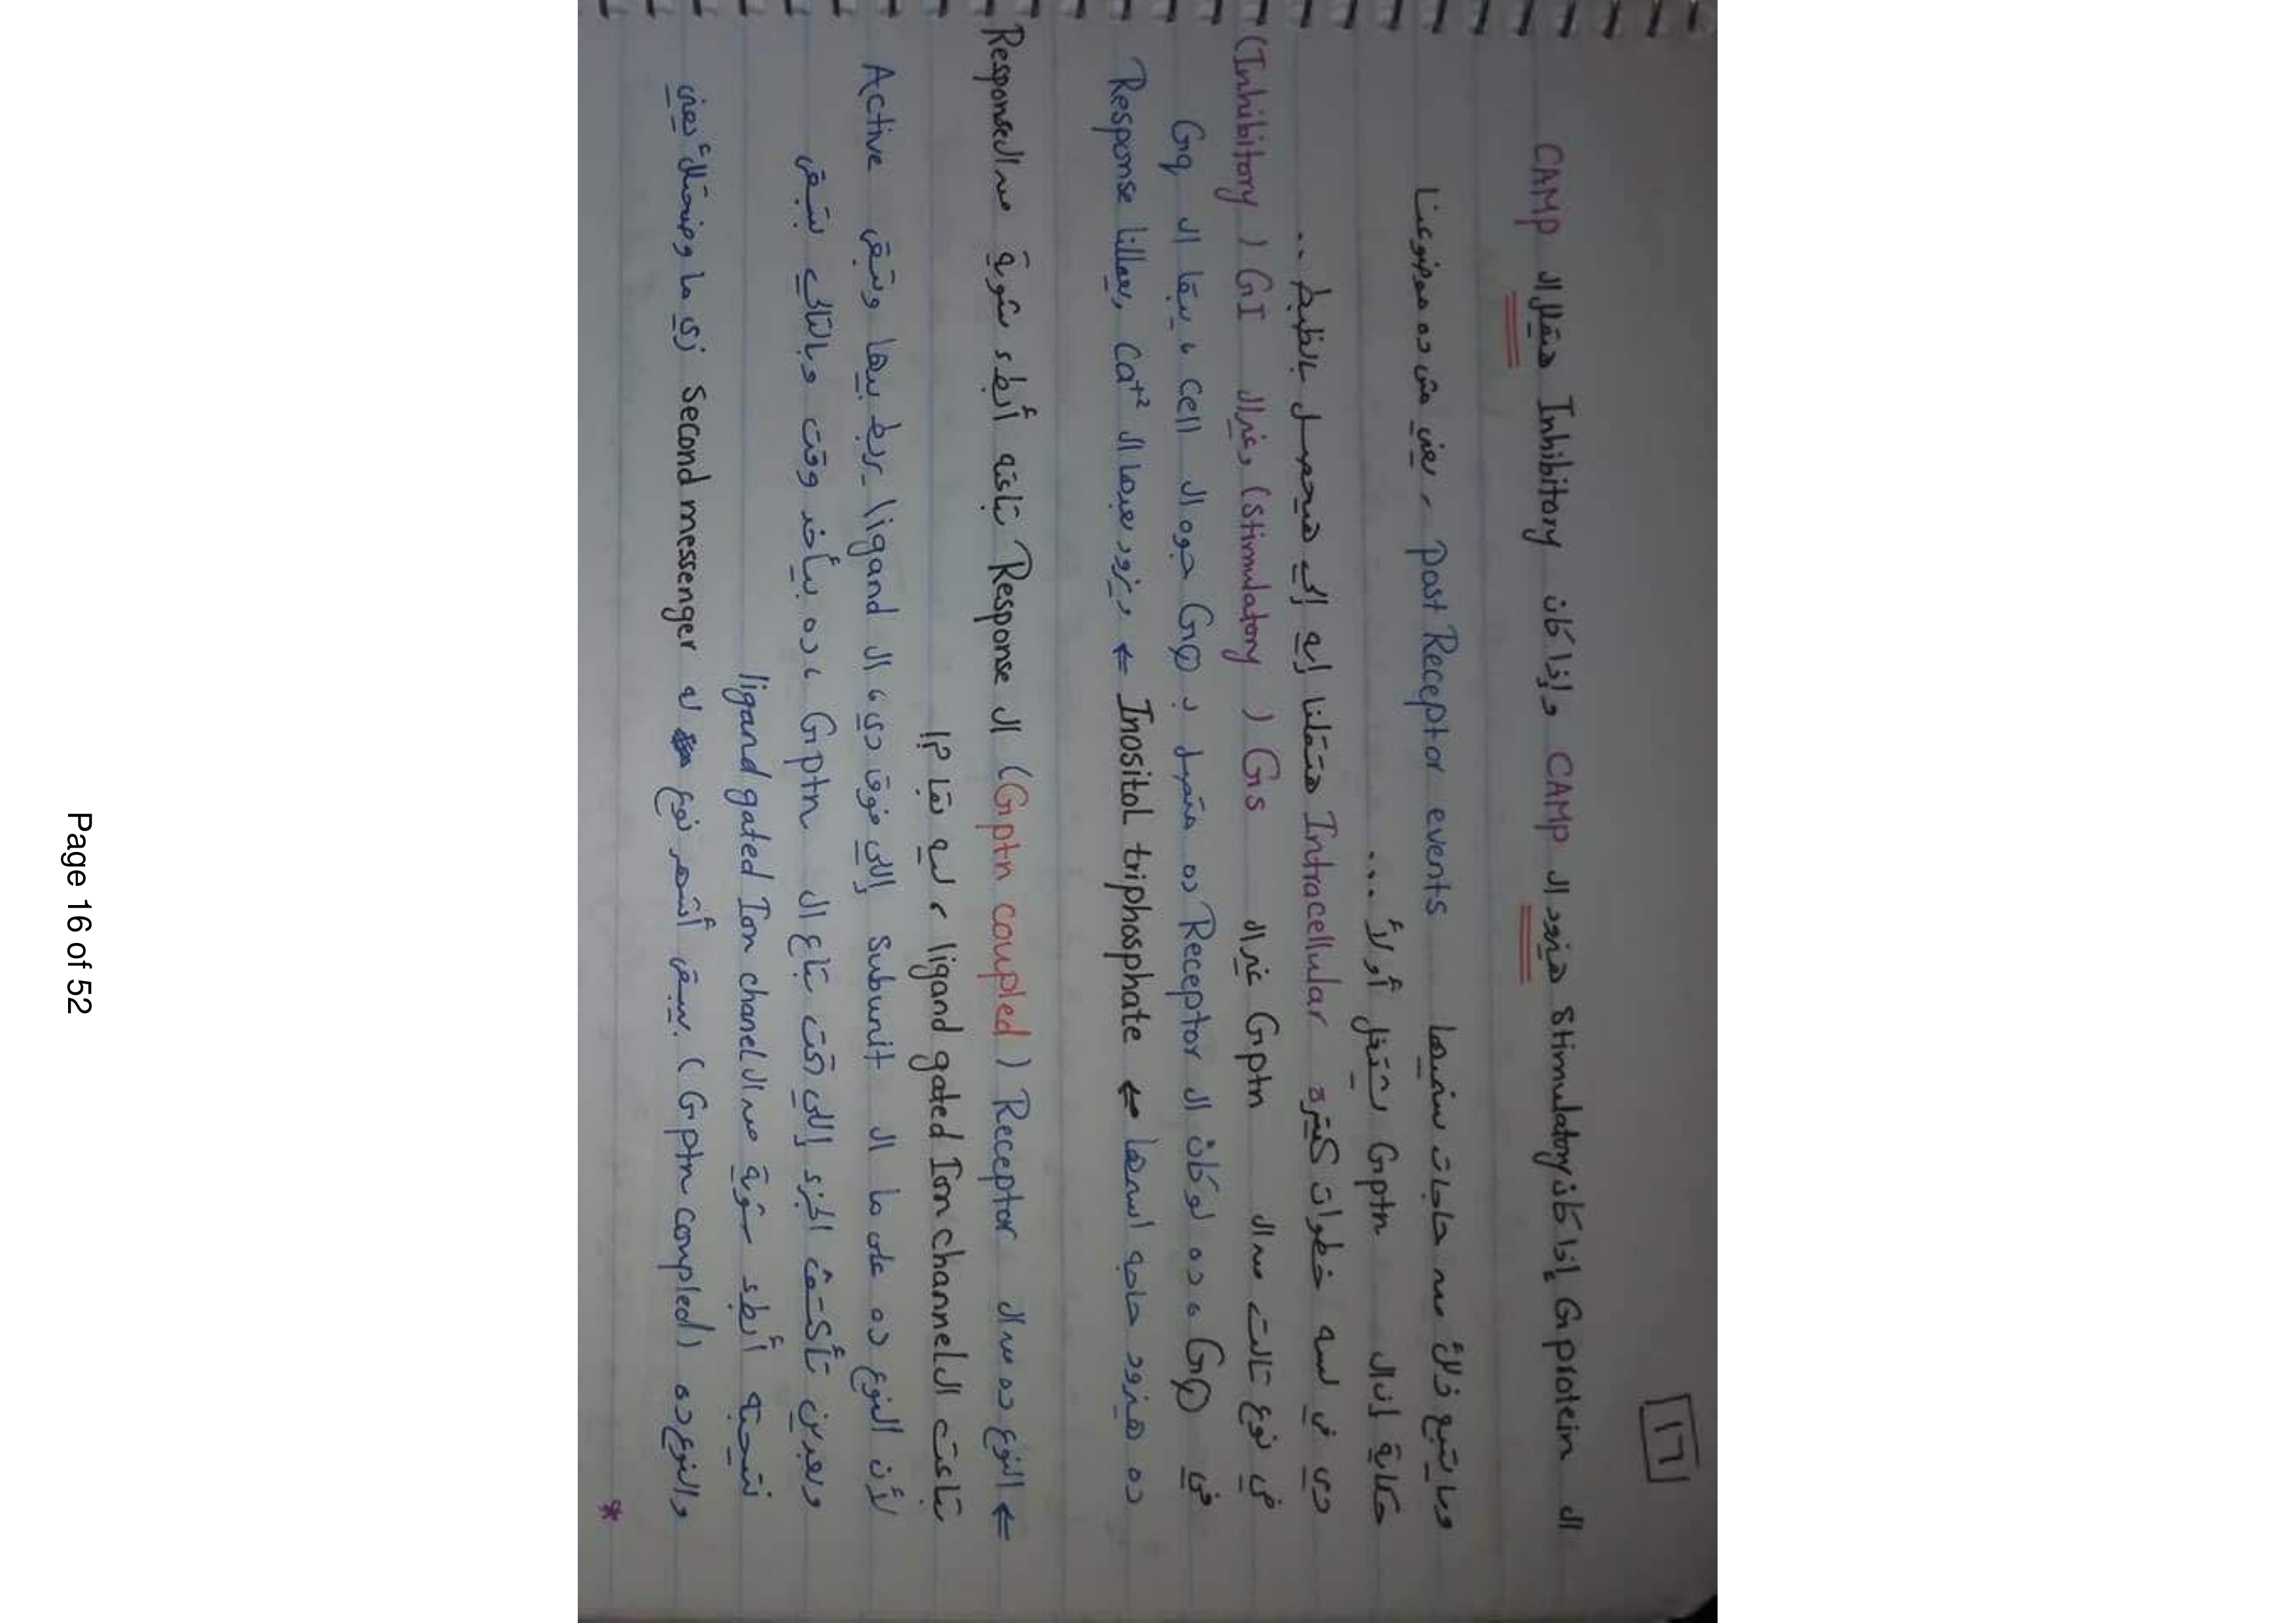 ١٦
ال G protein إذا كان Stimulatory هنزود ال CAMP وإذا كان Inhibitory هنقلل ال CAMP
وما يتبع ذلك من حاجات بنسميها Post Receptor events ، يعني مش ده موضوعنا
حكاية إن ال G ptn يشتغل أولاً ....
دي في لسه خطوات كتيرة Intracellular هتقلنا إيه إلي هيحصل بالظبط ..
في نوع تالت من ال G ptn غير ال Gs ( Stimulatory) وغير ال GI ( Inhibitory)
في Gq ، ده لو كان ال Receptor ده متصل ب Gq جوه ال Cell ، يبقا ال Gq
ده هنزود حاجه اسمها ← Inositol triphosphate ← ويزود عندها ال Ca+2 ويعمللنا Response
← النوع ده من ال Receptor ( G ptn coupled) ال Response بتاعته أبطء شوية من ال Response
بتاعت ال Ion channel ال ligand gated ، ليه بقا ؟!
لأن النوع ده على ما ال Subunit إللي فوق دي ، ال ligand يربط بيها وتبقى Active
وبعدين تأكتف الجزء إللي تحت بتاع ال G ptn ، ده بيأخد وقت وبالتالي تبقى
نتيجته أبطء شوية من ال ligand gated Ion chanel
والنوع ده (G ptn coupled ) يبقى أشهر نوع له Second messenger زي ما وضحتلك يعني
*
Page 16 of 52